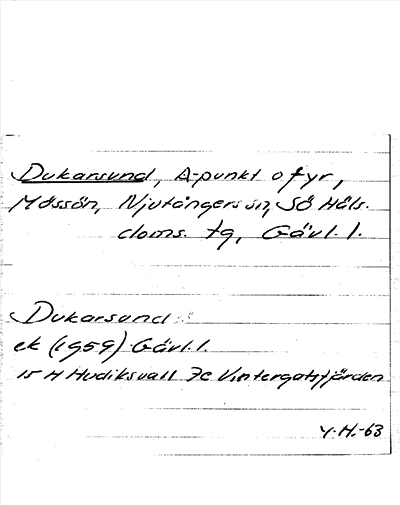 Dukarsund, A-punkt o fyr,
Mössön, Njutångers sn, Sö Häls.
doms. tg, Gävl. l.
Dukarsund
ek (1959) Gävl. l.
15 H Hudiksvall 7c Vintergatsfjärden
Y.H.-63